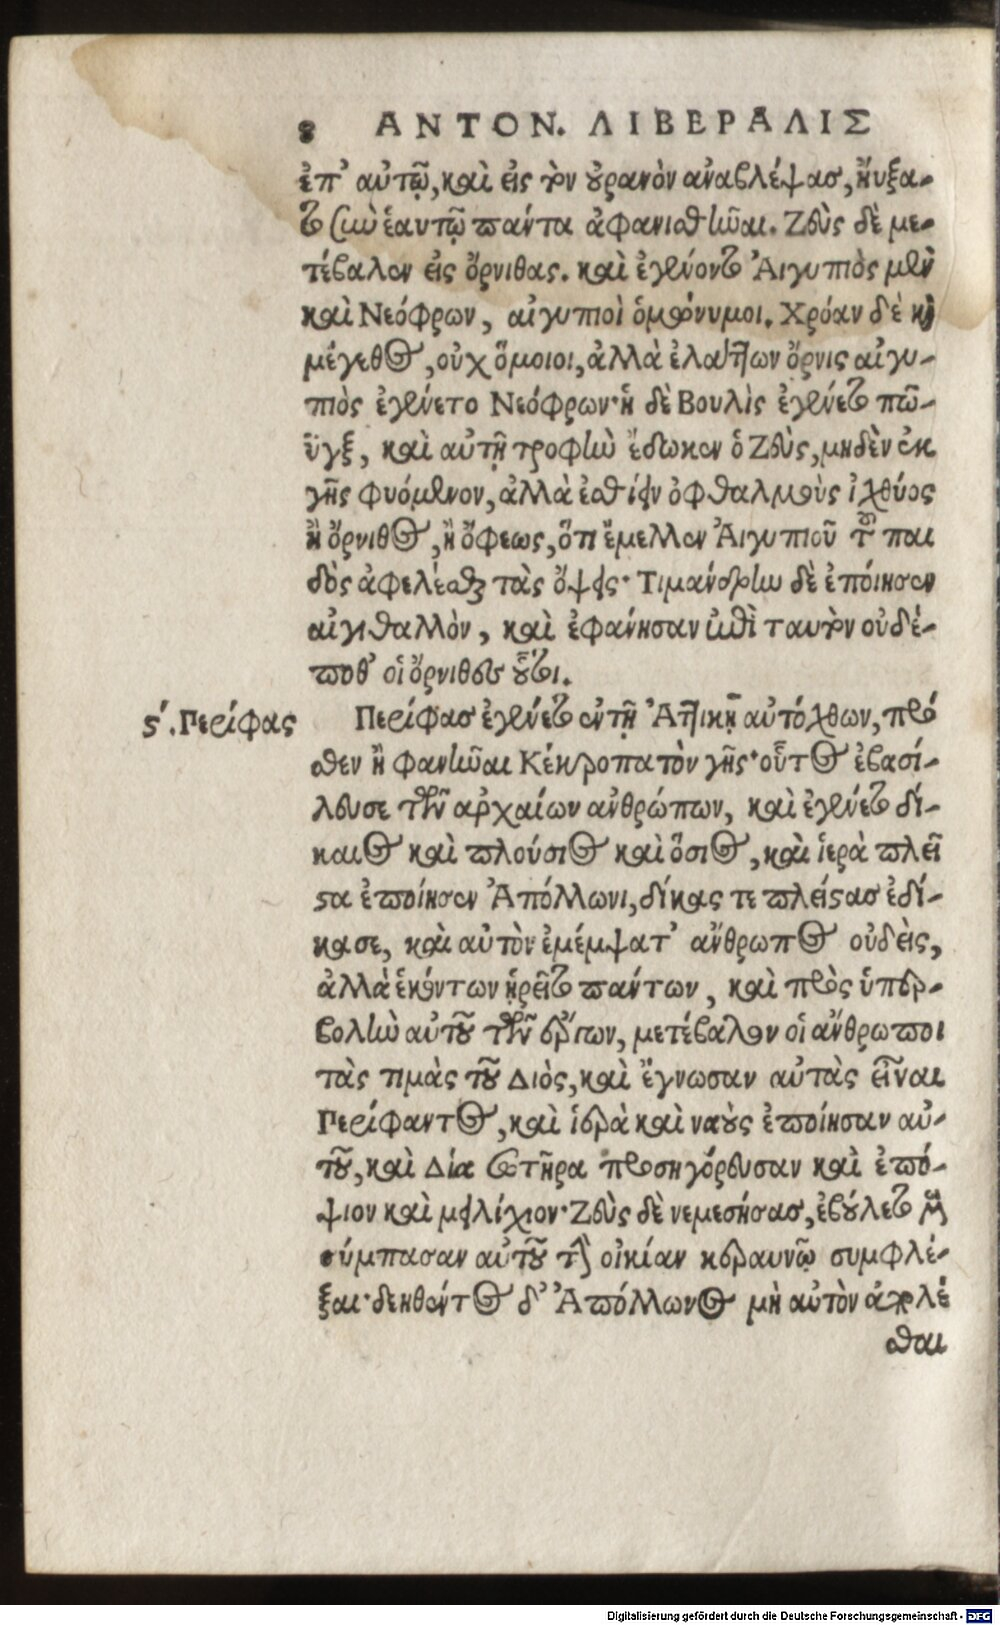 8 ΑΝΤΟΝ. ΛΙΒΕΡΑΛΙΣ
ἐπ' αὐτῷ, καὶ εἰς τὸν οὐρανὸν ἀναβλέψας, ἤυξα-
το σὺν ἑαυτῷ πάντα ἀφανισθῆναι. Ζεὺς δὲ με-
τέβαλεν εἰς ὄρνιθας. καὶ ἐγένοντο Ἀιγυπιὸς μὲν
καὶ Νεόφρων, αἰγυπιοὶ ὁμώνυμοι. Χρόαν δὲ καὶ
μέγεθος, οὐχ ὅμοιοι, ἀλλὰ ἐλάττων ὄρνις αἰγυ-
πιὸς ἐγένετο Νεόφρων· ἡ δὲ Βουλὶς ἐγένετο πῶ-
ϋγξ, καὶ αὐτῇ τροφὴν ἔδωκεν ὁ Ζεὺς, μηδὲν ἐκ
γῆς φυόμενον, ἀλλὰ ἐσθίειν ὀφθαλμοὺς ἰχθύος
ἢ ὄρνιθος, ἢ ὄφεως, ὅτι ἔμελλεν Ἀιγυπιοῦ τοῦ παι
δὸς ἀφελέσθαι τὰς ὄψεις· Τιμάνδρην δὲ ἐποίησεν
αἰγιθαλλὸν, καὶ ἐφάνησαν ἐπὶ ταυτὸν οὐδέ-
ποθ' οἱ ὄρνιθες οὗτοι.
ϛʹ. Περίφας
Περίφας ἐγένετο ἐν τῇ Ἀττικῇ αὐτόχθων, πρό
σθεν ἢ φανῆναι Κέκροπα τὸν γῆς· οὗτος ἐβασί-
λευσε τῶν ἀρχαίων ἀνθρώπων, καὶ ἐγένετο δί-
καιος καὶ πλούσιος καὶ ὅσιος, καὶ ἱερὰ πλεῖ
στα ἐποίησεν Ἀπόλλωνι, δίκας τε πλείστας ἐδί-
κασε, καὶ αὐτὸν ἐμέμψατ' ἄνθρωπος οὐδεὶς,
ἀλλὰ ἑκόντων ἡρεῖτο πάντων, καὶ πρὸς ὑπερ-
βολὴν αὐτοῦ τῶν ἔργων, μετέβαλον οἱ ἄνθρωποι
τὰς τιμὰς τοῦ Διὸς, καὶ ἔγνωσαν αὐτὰς εἶναι
Περίφαντος, καὶ ἱερὰ καὶ ναοὺς ἐποίησαν αὐ-
τοῦ, καὶ Δία σωτῆρα προσηγόρευσαν καὶ ἐπό-
ψιον καὶ μειλίχιον· Ζεὺς δὲ νεμεσήσας, ἐβούλετο μὲν
σύμπασαν αὐτοῦ τὴν οἰκίαν κεραυνῷ συμφλέ-
ξαι· δεηθέντος δ' Ἀπόλλωνος μὴ αὐτὸν ἀπολέ
σθαι
Digitalisierung gefördert durch die Deutsche Forschungsgemeinschaft - DFG